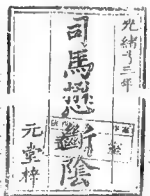 光緒三年
司馬懋斷陰
元堂梓